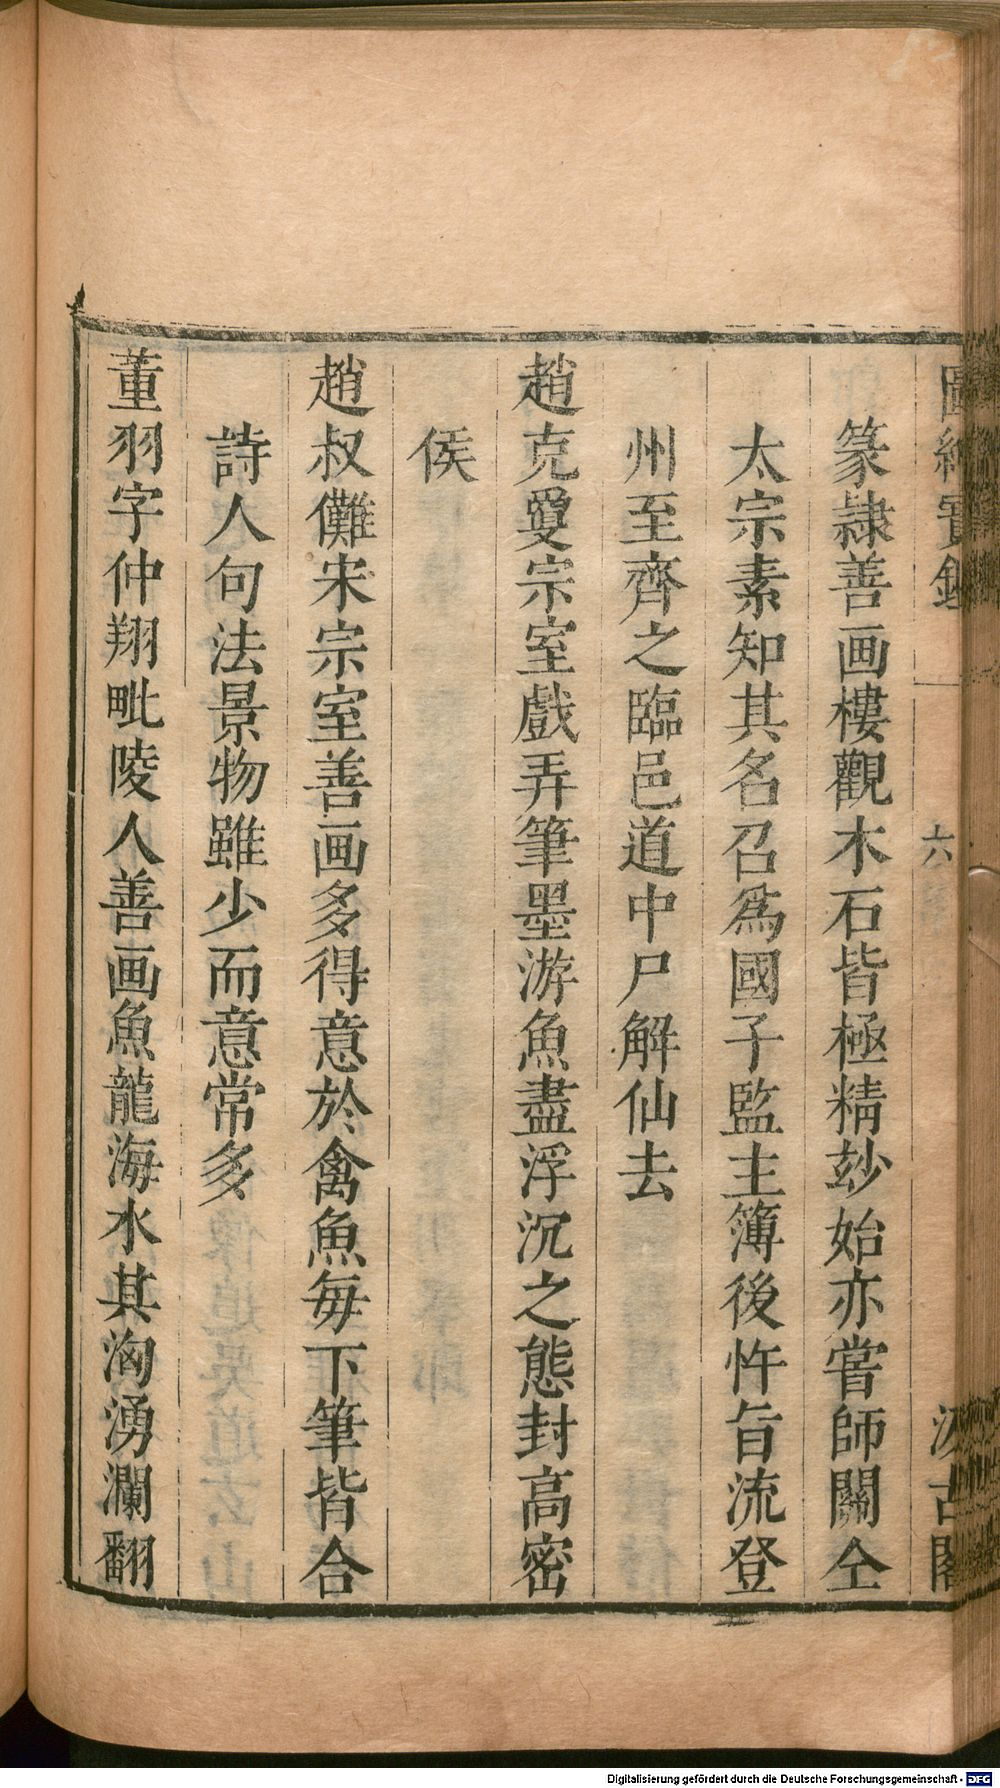 圖繪寶鑑
六
汲古閣
篆隷善画樓觀木石皆極精玅始亦嘗師關仝
太宗素知其名召爲國子監主簿後忤旨流登
州至齊之臨邑道中尸解仙去
趙克敻宗室戲弄筆墨游魚盡浮沉之態封高密
侯
趙叔儺宋宗室善画多得意於禽魚毎下筆皆合
詩人句法景物雖少而意常多
董羽字仲翔毗陵人善画魚龍海水其洶湧瀾翻
Digitalisierung gefördert durch die Deutsche Forschungsgemeinschaft - DFG